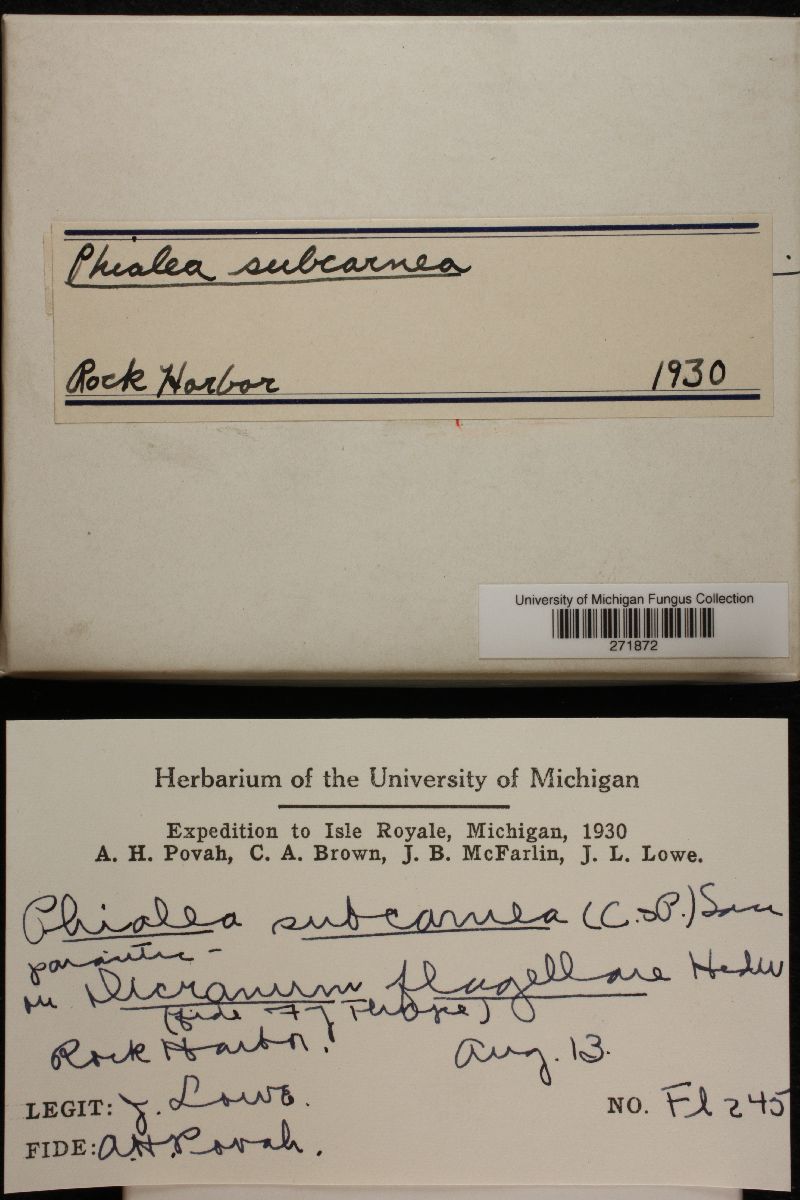 Phialea subcarnea
Rock Harbor 1930
University of Michigan Fungus Collection
271872
Herbarium of the University of Michigan
Expedition to Isle Royale, Michigan, 1930
A. H. Povah, C. A. Brown, J. B. McFarlin, J. L. Lowe.
Phialea subcarnea (C. & P.) Sacc
parasitic -
on Dicranum flagellare Hedw
(fide F J Thorpe)
Rock Harbor. Aug. 13.
LEGIT: J. Lowe.
NO. Fl 245
FIDE: A.H.Povah.